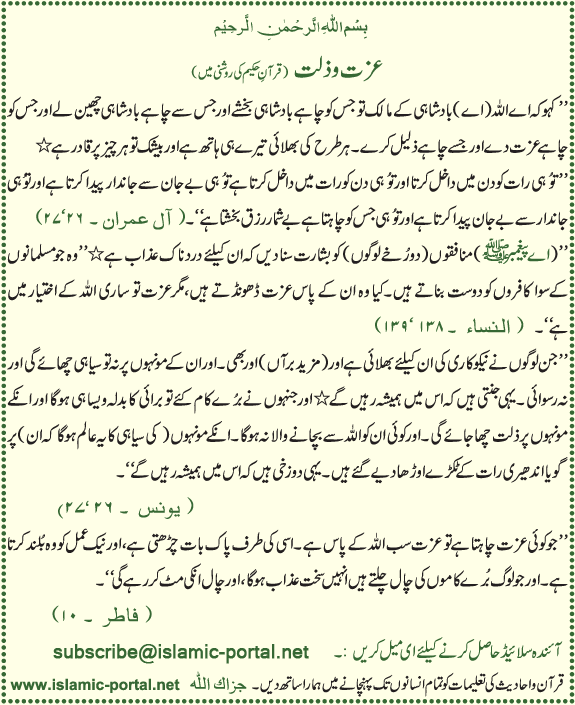 بِسْمِ اللهِ الرَّحْمٰنِ الرَّحِيْمِ
عزت و ذلت (قرآنِ حکیم کی روشنی میں)
’’کہو کہ اے اللہ (اے) بادشاہی کے مالک تو جس کو چاہے بادشاہی بخشے اور جس سے چاہے بادشاہی چھین لے اور جس کو
چاہے عزت دے اور جسے چاہے ذلیل کرے۔ ہر طرح کی بھلائی تیرے ہی ہاتھ ہے اور بیشک تو ہر چیز پر قادر ہے☆
’’تُو ہی رات کو دن میں داخل کرتا اور تُو ہی دن کو رات میں داخل کرتا ہے تُو ہی بے جان سے جاندار پیدا کرتا ہے اور تُو ہی
جاندار سے بے جان پیدا کرتا ہے اور تُو ہی جس کو چاہتا ہے بے شمار رزق بخشتا ہے‘‘۔ ( آل عمران ۔ ۲۶‘۲۷)
’’(اے پیغمبر ﷺ) منافقوں (دو رُخے لوگوں) کو بشارت سنا دیں کہ ان کیلئے دردناک عذاب ہے☆’’وہ جو مسلمانوں
کے سوا کافروں کو دوست بناتے ہیں۔ کیا وہ ان کے پاس عزت ڈھونڈتے ہیں، مگر عزت تو ساری اللہ کے اختیار میں
ہے‘‘۔ ( النساء ۔ ۱۳۸ ‘۱۳۹)
’’جن لوگوں نے نیکوکاری کی ان کیلئے بھلائی ہے اور (مزید برآں) اور بھی۔ اور ان کے مونہوں پر نہ تو سیاہی چھائے گی اور
نہ رسوائی۔ یہی جنتی ہیں کہ اس میں ہمیشہ رہیں گے☆ اور جنہوں نے برُے کام کئے تو برائی کا بدلہ ویسا ہی ہوگا اور انکے
مونہوں پر ذلت چھا جائے گی۔ اور کوئی ان کو اللہ سے بچانے والا نہ ہوگا۔ انکے مونہوں (کی سیاہی کا یہ عالم ہوگا کہ ان) پر
گویا اندھیری رات کے ٹکڑے اوڑھا دیے گئے ہیں۔ یہی دوزخی ہیں کہ اس میں ہمیشہ رہیں گے‘‘۔
( یونس ۔ ۲۶ ‘۲۷)
’’جو کوئی عزت چاہتا ہے تو عزت سب اللہ کے پاس ہے۔ اسی کی طرف پاک بات چڑھتی ہے، اور نیک عمل کو وہ بلند کرتا
ہے۔ اور جو لوگ بُرے کاموں کی چال چلتے ہیں انہیں سخت عذاب ہوگا، اور چال انکی مٹ کر رہے گی‘‘۔
( فاطر ۔ ۱۰)
آئندہ سلائیڈ حاصل کرنے کیلئے ای میل کریں :۔ subscribe@islamic-portal.net
قرآن و احادیث کی تعلیمات کو تمام انسانوں تک پہنچانے میں ہمارا ساتھ دیں۔ جزاك الله www.islamic-portal.net